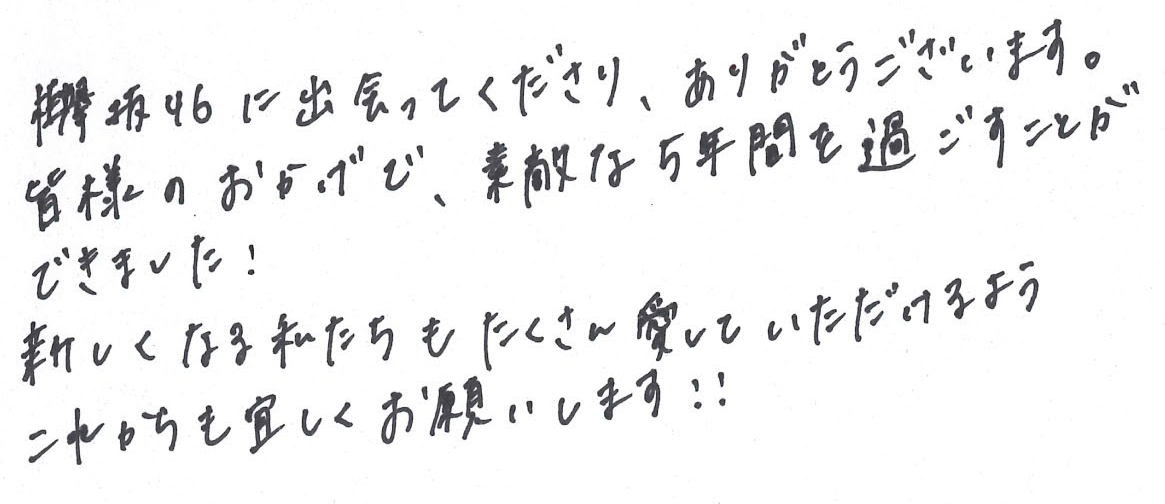 欅坂46に出会ってくださり、ありがとうございます。
皆様のおかげで、素敵な5年間を過ごすことが
できました!
新しくなる私たちもたくさん愛していただけるよう
これからも宜しくお願いします!!